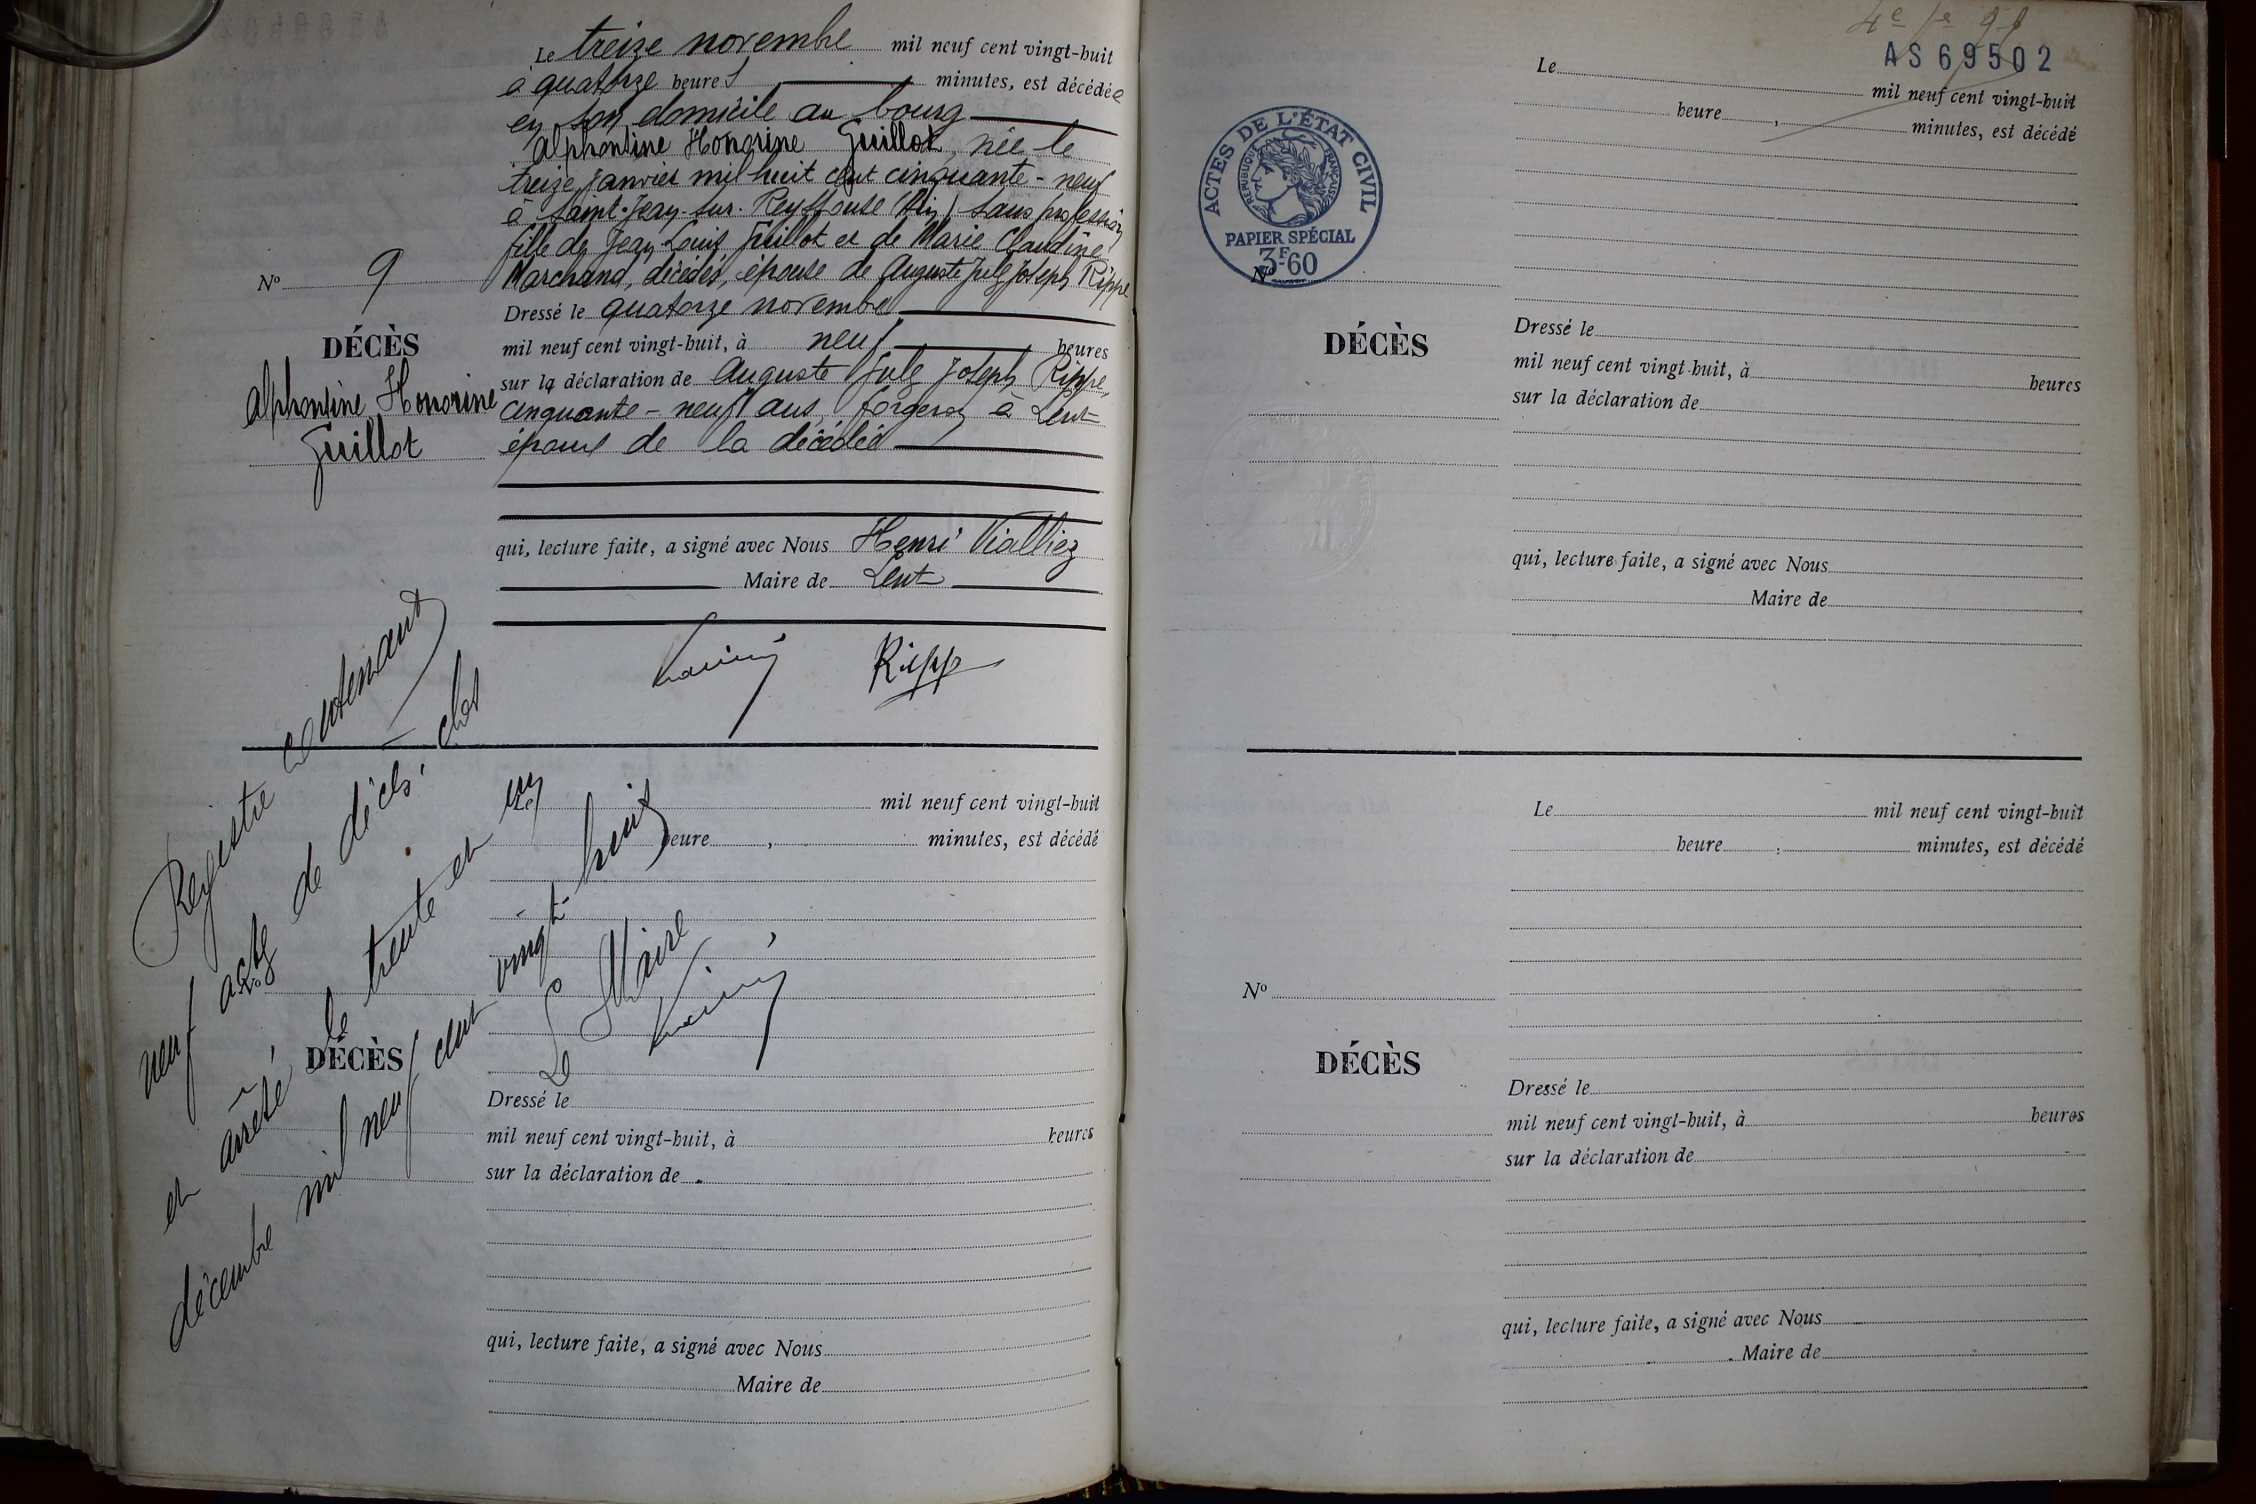 Le treize novembre mil neuf cent vingt-huit
à quatorze heures minutes, est décédée
en son domicile au bourg
Alphontine Honorine Guillot, née le
treize janvier mil huit cent cinquante-neuf
à Saint-Jean-sur-Reyssouse (Ain) sans profession
fille de Jean Louis Guillot et de Marie Claudine
Marchand, décédés, épouse de Auguste Jules Joseph Rippe
Nº 9
Dressé le quatorze novembre
DÉCÈS
mil neuf cent vingt-huit, à neuf heures
Alphontine Honorine
Guillot
sur la déclaration de Auguste Jules Joseph Rippe,
cinquante-neuf ans, forgeron à Lent
époux de la décédée
qui, lecture faite, a signé avec Nous Henri
Maire de Lent
Rippe
Registre contenant
neuf actes de décès clos
et arrêté le trente et un
décembre mil neuf cent vingt-huit
Le Maire
Le mil neuf cent vingt-huit
heure , minutes, est décédé
Nº
DÉCÈS
Dressé le
mil neuf cent vingt-huit, à heures
sur la déclaration de
qui, lecture faite, a signé avec Nous
Maire de
AS 69502
ACTES DE L'ÉTAT CIVIL
RÉPUBLIQUE FRANÇAISE
PAPIER SPÉCIAL
3F-60
Le mil neuf cent vingt-huit
heure , minutes, est décédé
Nº
DÉCÈS
Dressé le
mil neuf cent vingt-huit, à heures
sur la déclaration de
qui, lecture faite, a signé avec Nous
Maire de
Le mil neuf cent vingt-huit
heure , minutes, est décédé
Nº
DÉCÈS
Dressé le
mil neuf cent vingt-huit, à heures
sur la déclaration de
qui, lecture faite, a signé avec Nous
Maire de